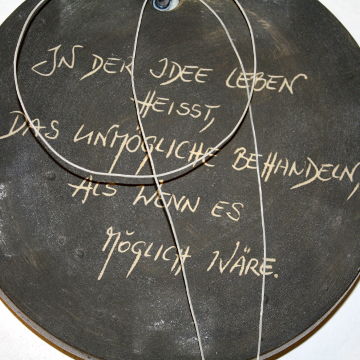 IN DER IDEE LEBEN
HEISST,
DAS UNMÖGLICHE BEHANDELN,
ALS WENN ES
MÖGLICH WÄRE.